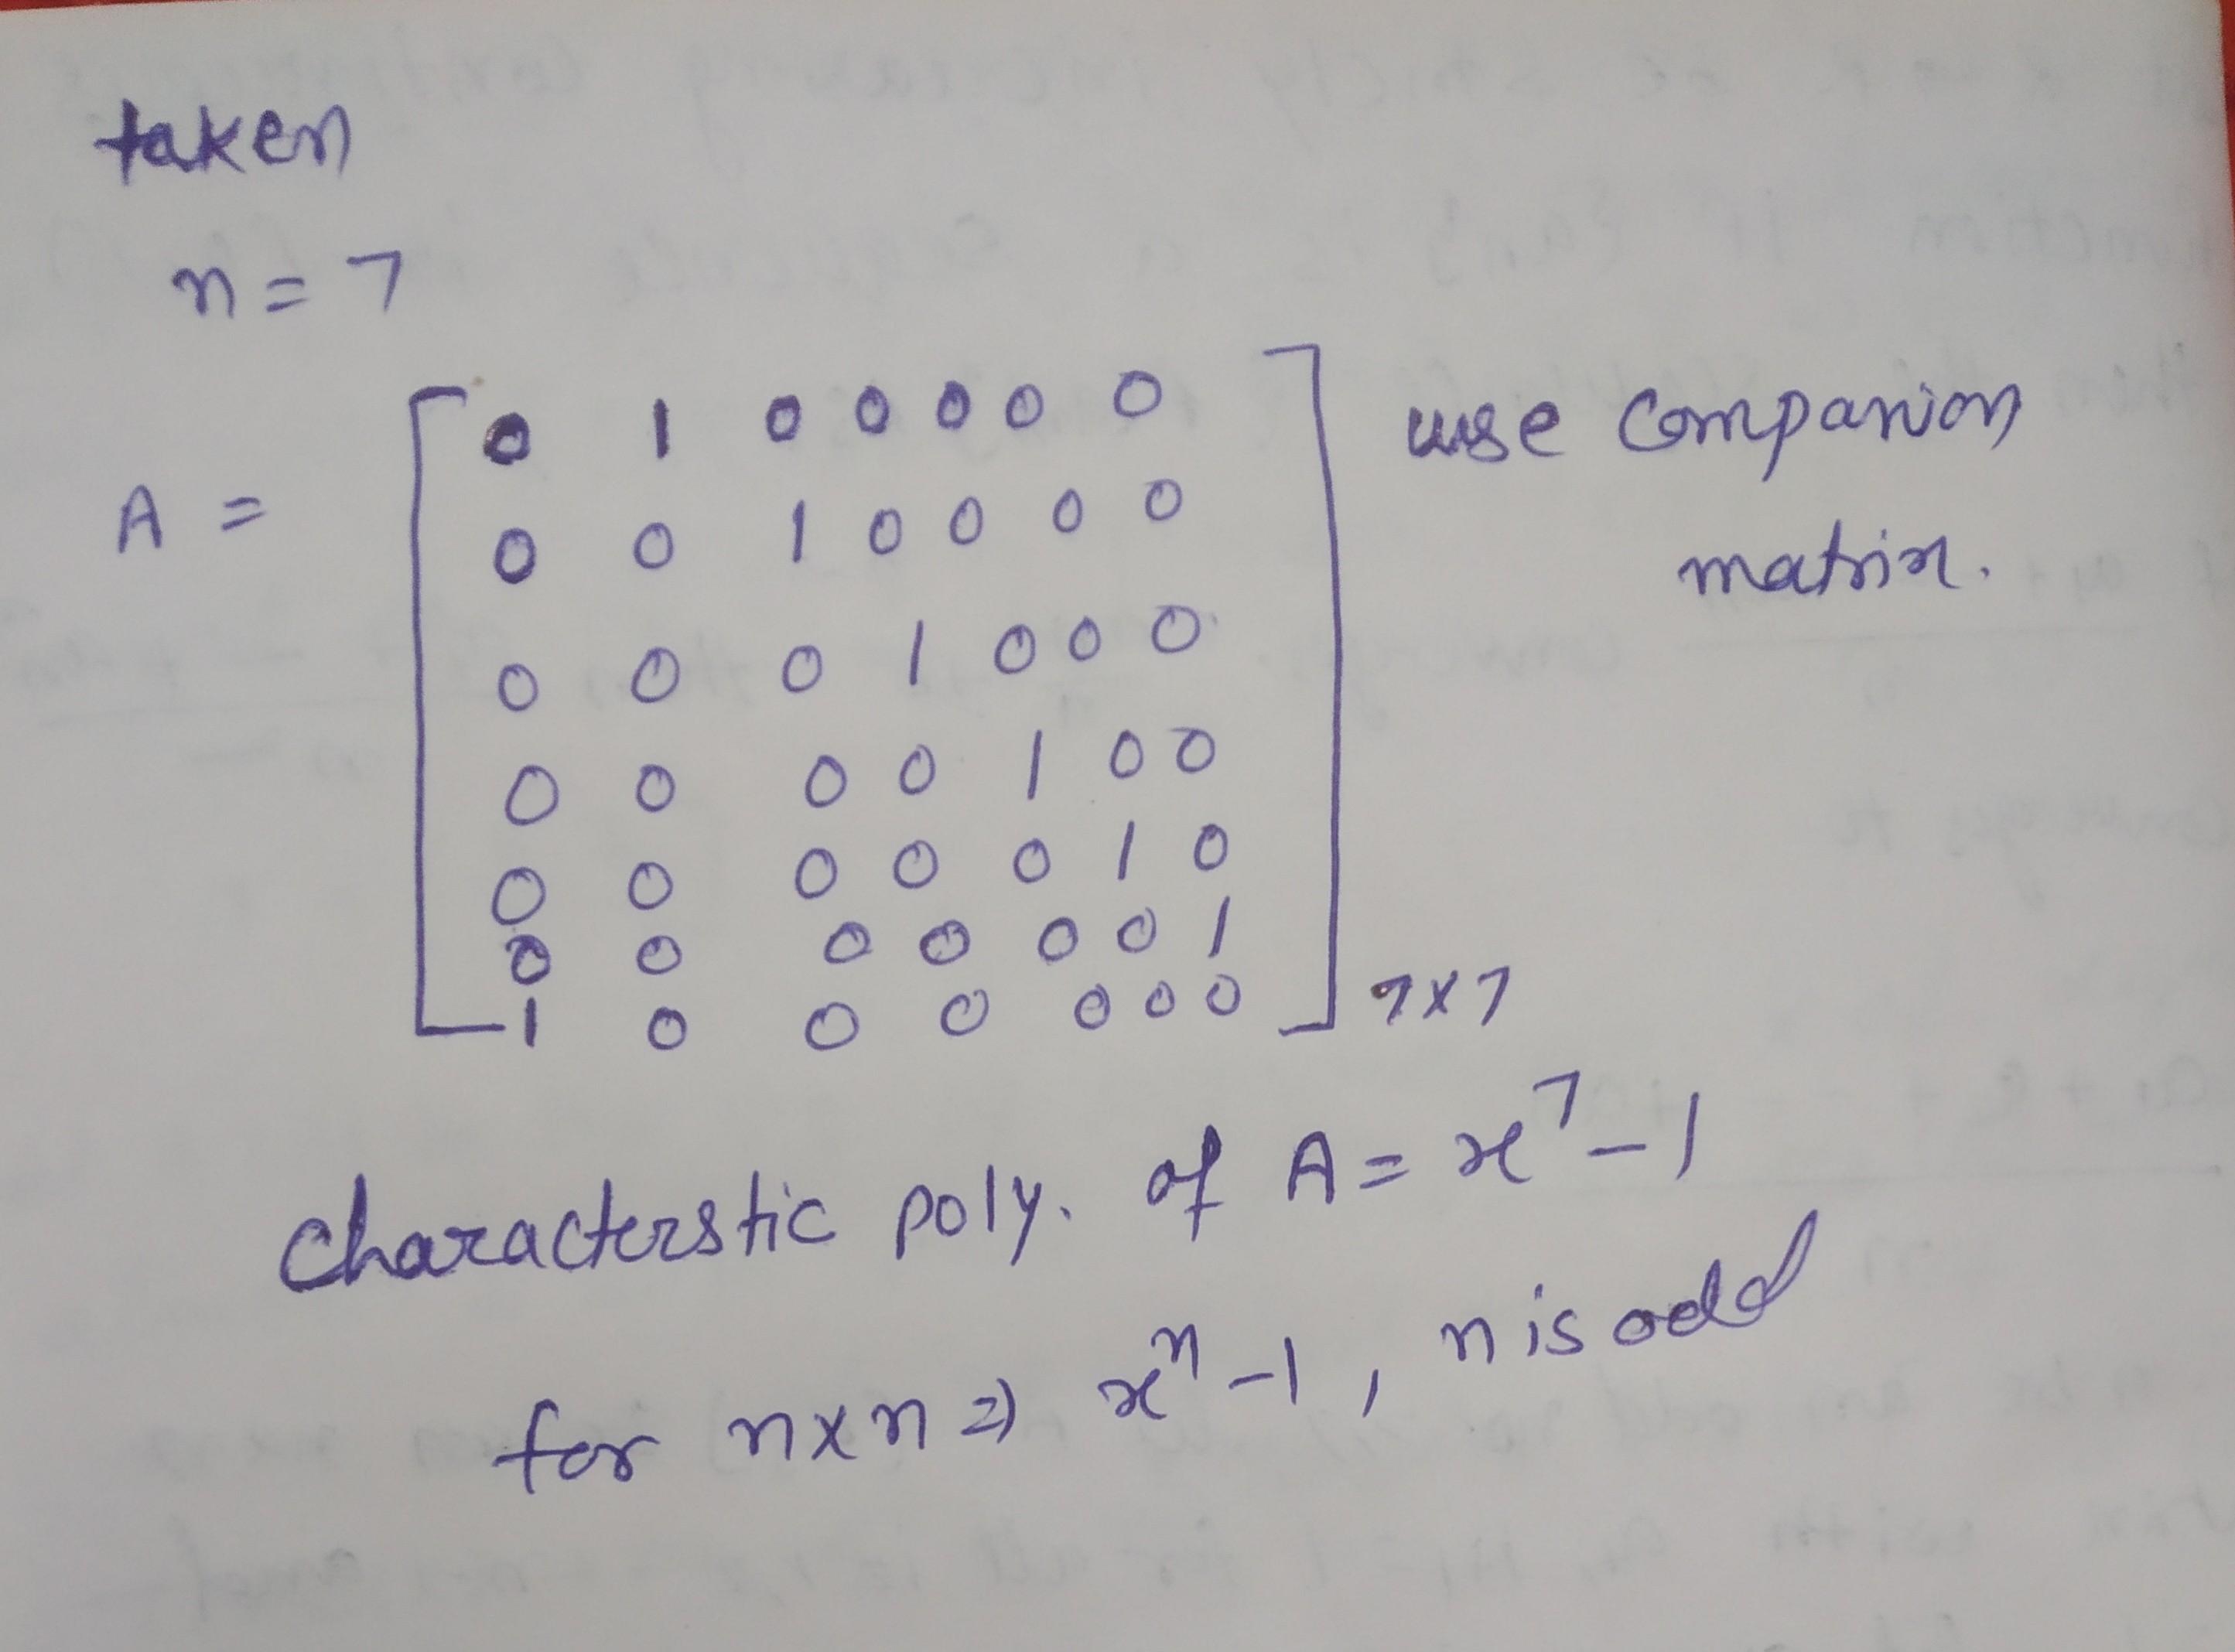 taken
n = 7
A = [ 0 1 0 0 0 0 0 use companion
0 0 1 0 0 0 0 matrix.
0 0 0 1 0 0 0
0 0 0 0 1 0 0
0 0 0 0 0 1 0
0 0 0 0 0 0 1
1 0 0 0 0 0 0 ] 7x7
characterstic poly. of A = x⁷ - 1
for n x n ⇒ xⁿ - 1, n is odd